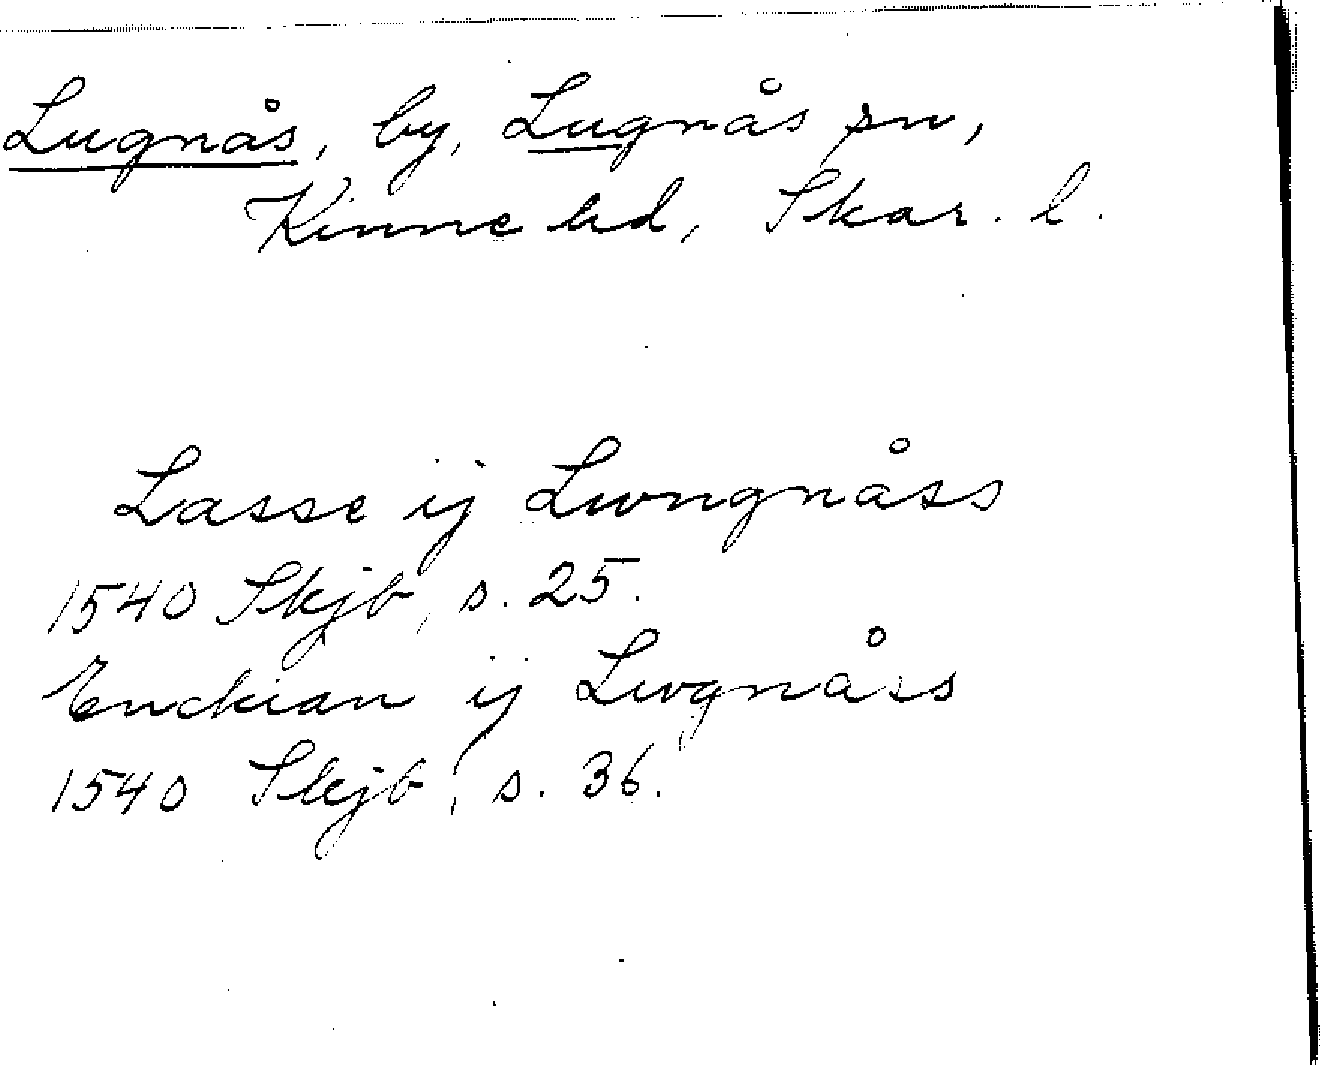 Lugnås, by, Lugnås sn,
Kinne hd, Skar. l.
Lasse ij Lwngnåss
1540 Skjb, s. 25.
Enckian ij Lwgnåss
1540 Skjb, s. 36.